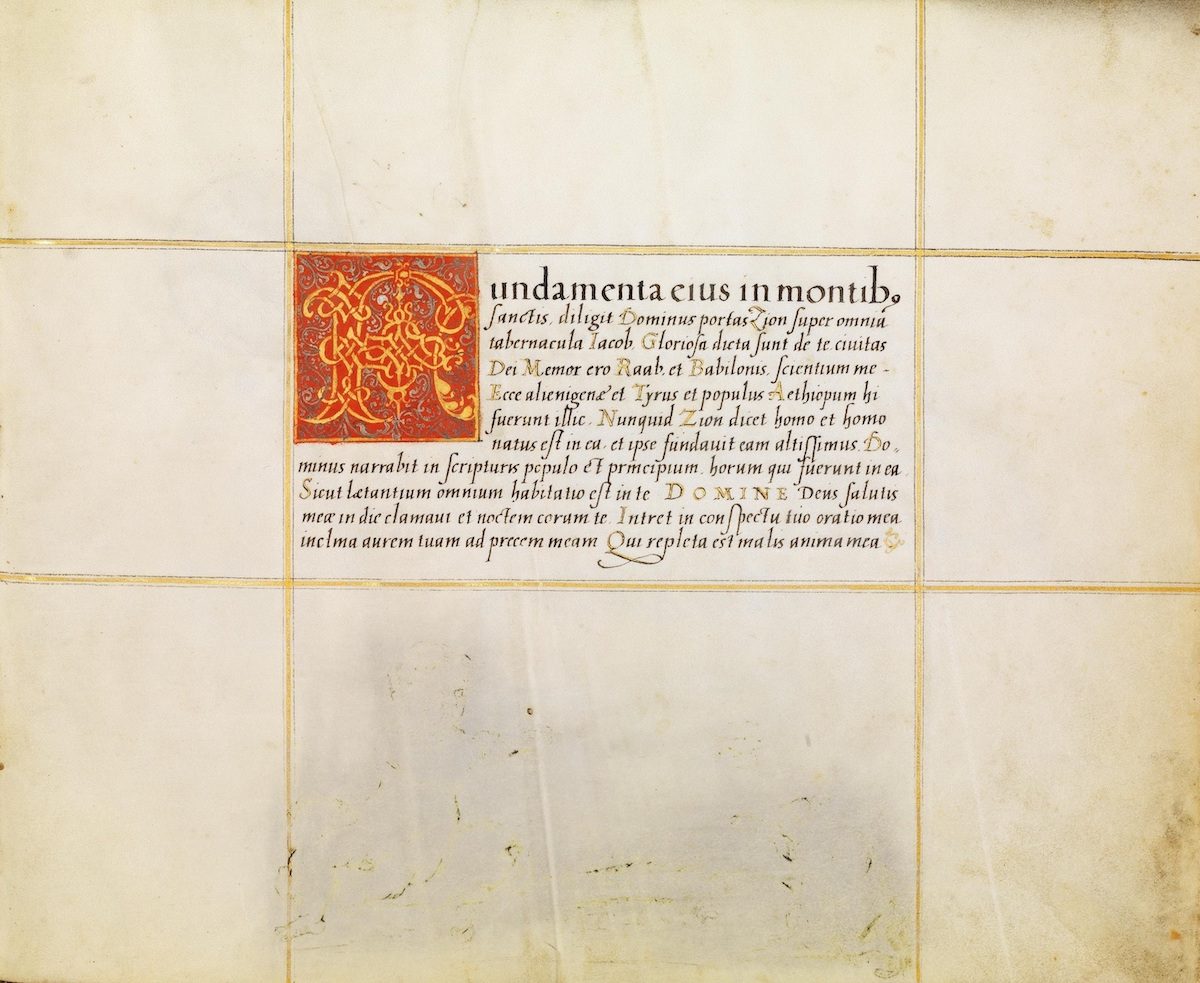 Fundamenta eius in montibꝰ
sanctis. diligit Dominus portas Zion super omnia
tabernacula Iacob. Gloriosa dicta sunt de te ciuitas
Dei Memor ero Raab. et Babilonis. scientium me -
Ecce alienigenæ et Tyrus et populus Aethiopum hi
fuerunt illic. Nunquid Zion dicet homo et homo
natus est in ea. et ipse fundauit eam altissimus. Do-
minus narrabit in scripturis populo et principium. horum qui fuerunt in ea.
Sicut lætantium omnium habitatio est in te DOMINE Deus salutis
meæ in die clamaui et noctem coram te. Intret in conspectu tuo oratio mea
inclina aurem tuam ad precem meam Qui repleta est malis anima mea